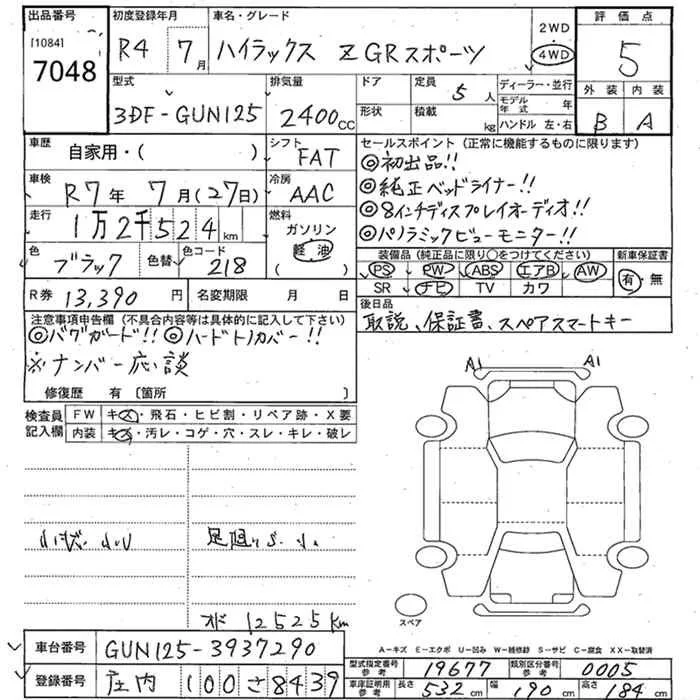 出品番号
[1084]
7048
初度登録年月
R4 7月
車名・グレード
ハイラックス Z GRスポーツ
2WD
4WD
評価点
5
外装 内装
B A
型式
3DF-GUN125
排気量
2400cc
ドア
形状
定員
5人
積載
kg
ディーラー・並行
モデル年式 年
ハンドル 左・右
車歴
自家用・( )
シフト
FAT
車検
R7年 7月(27日)
冷房
AAC
走行
1万2千524km
燃料
ガソリン
軽油
( )
色
ブラック
色替
色コード
218
R券 13,390円
名変期限 月 日
セールスポイント(正常に機能するものに限ります)
◎初出品!!
◎純正ベッドライナー!!
◎8インチディスプレイオーディオ!!
◎パノラミックビューモニター!!
装備品(純正品に限り○をつけてください)
PS PW ABS エアB AW
SR ナビ TV カワ
新車保証書
有・無
後日品
取説、保証書、スペアスマートキー
注意事項申告欄(不具合内容等は具体的に記入して下さい)
◎バグガード!! ◎ハードトノカバー!!
※ナンバー応談
修復歴 有〔箇所 〕
検査員記入欄
FW キズ・飛石・ヒビ割・リペア跡・X要
内装 キズ・汚レ・コゲ・穴・スレ・キレ・破レ
A1 A1
オド 12525km
スペア
A－キズ E－エクボ U－凹み W－補修跡 S－サビ C－腐食 XX－取替済
車台番号 GUN125-3937290
登録番号 庄内 100さ8439
型式指定番号 参考 19677
類別区分番号 参考 0005
車庫証明用 参考 長さ 532cm 幅 190cm 高さ 184cm